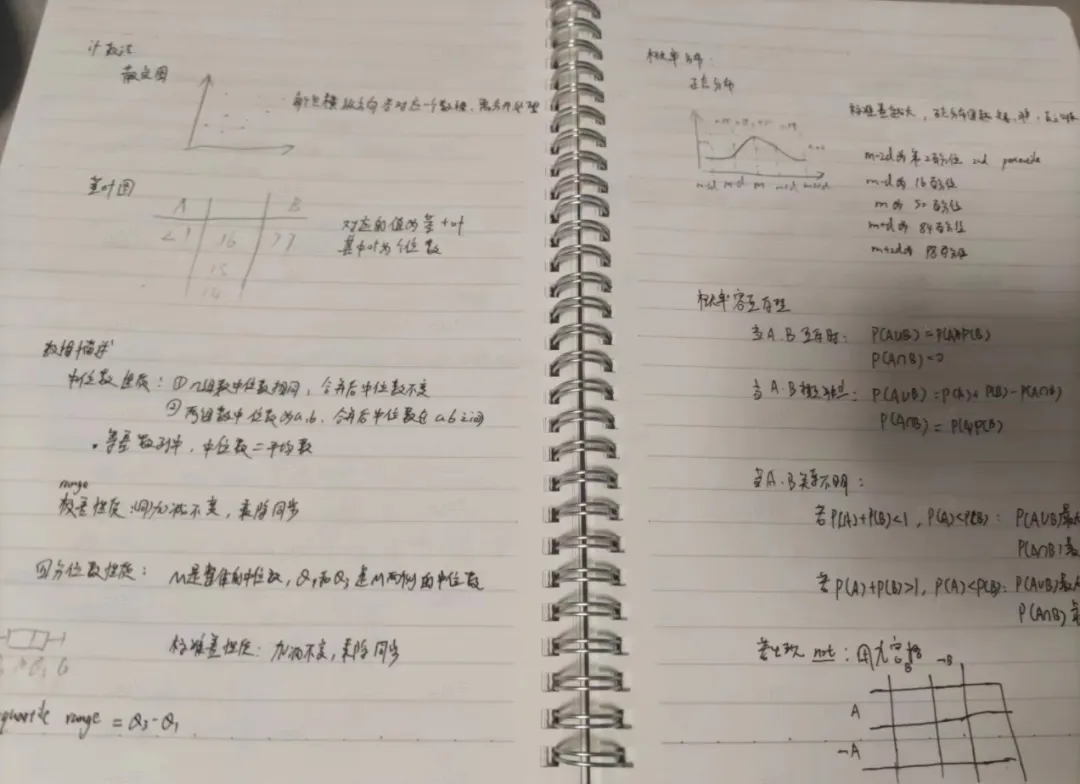 计数法
散点图
茎叶图
A B
21 16 77
15
对应的值为茎+叶
其中叶为个位数
数据描述
中位数性质：①几组数中位数相同，合并后中位数不变
②两组数中位数为a,b，合并后中位数在a,b之间
等差数列中，中位数=平均数
range
极差性质：同加减不变，乘除同步
四分位数性质： M是整体的中位数，Q1和Q3是M两侧的中位数
标准差性质：加减不变，乘除同步
range = Q3-Q1
概率分布
正态分布
标准差越大，正态分布图
m-2d m-d m m+d m+2d
m-2d为第2百分位 2nd
m-d为16百分位
m为50百分位
m+d为84百分位
m+2d为98百分位
当A.B互斥时： P(A∪B)=P(A)+P(B)
P(A∩B)=0
当A.B相互独立： P(A∪B)=P(A)+P(B)-P(A∩B)
P(A∩B)=P(A)P(B)
当A.B关系不明：
若P(A)+P(B)<1，P(A)<P(B)： P(A∪B)最
P(A∩B)最
若P(A)+P(B)>1，P(A)<P(B)：P(A∪B)最
P(A∩B)最
若出现 not：用九宫格
B ¬B
A
¬A